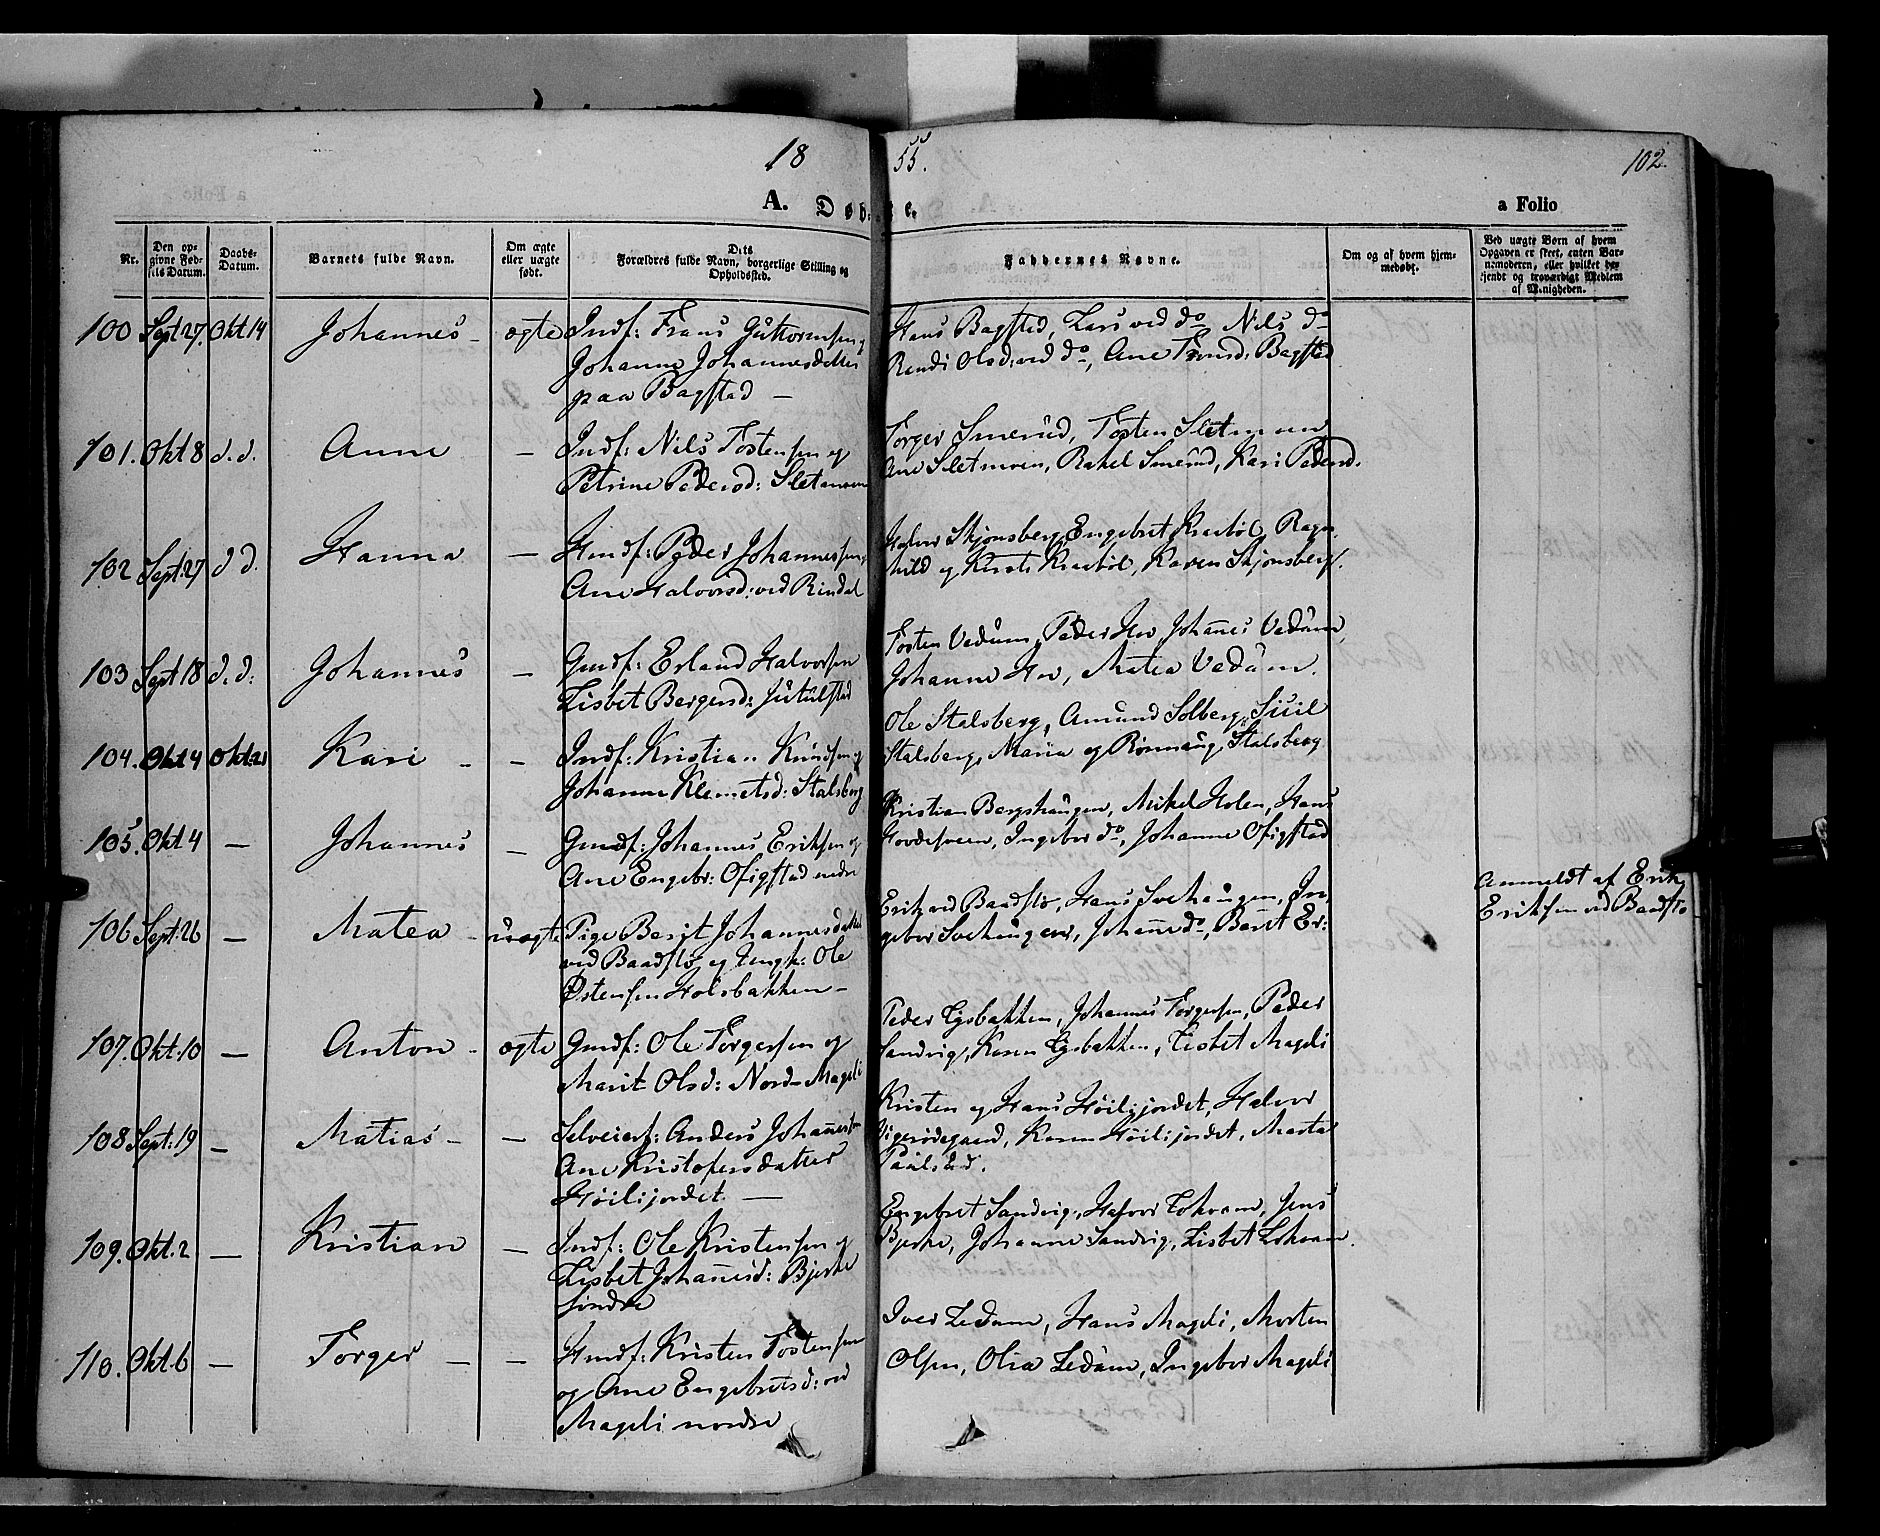 18 55. 102.
A. Døbte. a Folio
Nr. Den opgivne Fødsels Datum. Daabs-Datum. Barnets fulde Navn. Om ægte eller uægte født. Dets Forældres fulde Navn, borgerlige Stilling og Opholdssted. Faddernes Navne. Om og af hvem hjemmedøbt. Ved uægte Børn af hvem Opgaven er skeet, enten Barnemoderen, eller hvilket bekjendt og troværdigt Medlem af Menigheden.
100 Sept 27. Okt 14 Johannes - ægte Indf: Frans Guttormsen og Hans Bagstad, Lars ved do, Nils do
Johanne Johannesdatter Randi Olsd: ved do, Ane Fransd: Bagstad
paa Bagstad -
101. Okt 8 d. d. Anne - Indf: Nils Tostensen og Torger Smerud, Tosten Sletmoen
Petrine Pedersd: Sletmoen Ane Sletmoen, Rakel Smerud, Kari Pedersd.
102 Sept: 27 d d. Hanna - Hmdf: Peder Johannessen Halvor Skjønsberg, Engebret Kraabøl, Ragn-
Ane Halvorsd: ved Rindal hild og Kersti Kraabøl, Karen Skjønsberg.
103 Sept 18 d. d: Johannes - Gmdf: Erland Halvorsen Tosten Vedum, Peder Hov, Johannes Vedum,
Lisbet Bergersd: Jutulstad Johanne Hov, Matea Vedum.
104. Okt 4 Okt: 21 Kari - - Indf: Kristian Knudsen og Ole Stalsberg, Amund Solberg, Siril
Johanne Klemetsd: Stalsberg Stalsberg, Maria og Rønnaug Stalsberg
105. Okt 4 - Johannes - Gmdf: Johannes Eriksen og Kristian Bergshaugen, Mikel Holen, Hans
Ane Engebr: Ofigstad nedre Hovdesveen, Ingebor do, Johanne Ofigstad
106 Sept: 26 - Matea - uægte Pige Berit Johannesdatter Erik ved Baadstø, Hans Svehaugen, In- Anmeldt af Erik
ved Baadstø og Ungk: Ole gebor Svehaugen, Johanne do, Berit Er: Eriksen ved Baadstø
Østensen Holsbakken -
107. Okt: 10 - Anton - ægte Gmdf: Ole Torgersen og Peder Lysbakken, Johannes Torgersen, Peder
Marit Olsd: Nord-Mageli Sandvig, Karen Lysbakken, Lisbet Mageli
108 Sept: 19 - Matias - - Selveierf: Anders Johannesen Kristen og Hans Høilijordet, Halvor
Ane Kristofersdatter Karen Høilijordet, Marta
Høilijordet. -
109. Okt: 2 - Kristian - Indf: Ole Kristensen og Engebret Sandvig, Halvor Lokvam, Jens
Lisbet Johannesd: Bjerke Bjerke, Johanne Sandvig, Lisbet Lokvam.
søndre
110. Okt. 6 - Torger - - Hmdf: Kristen Tostensen Iver Ledum, Hans Mageli, Morten
og Ane Engebretsd: ved Olsen, Olia Ledum, Ingebor Mageli
Mageli nordre